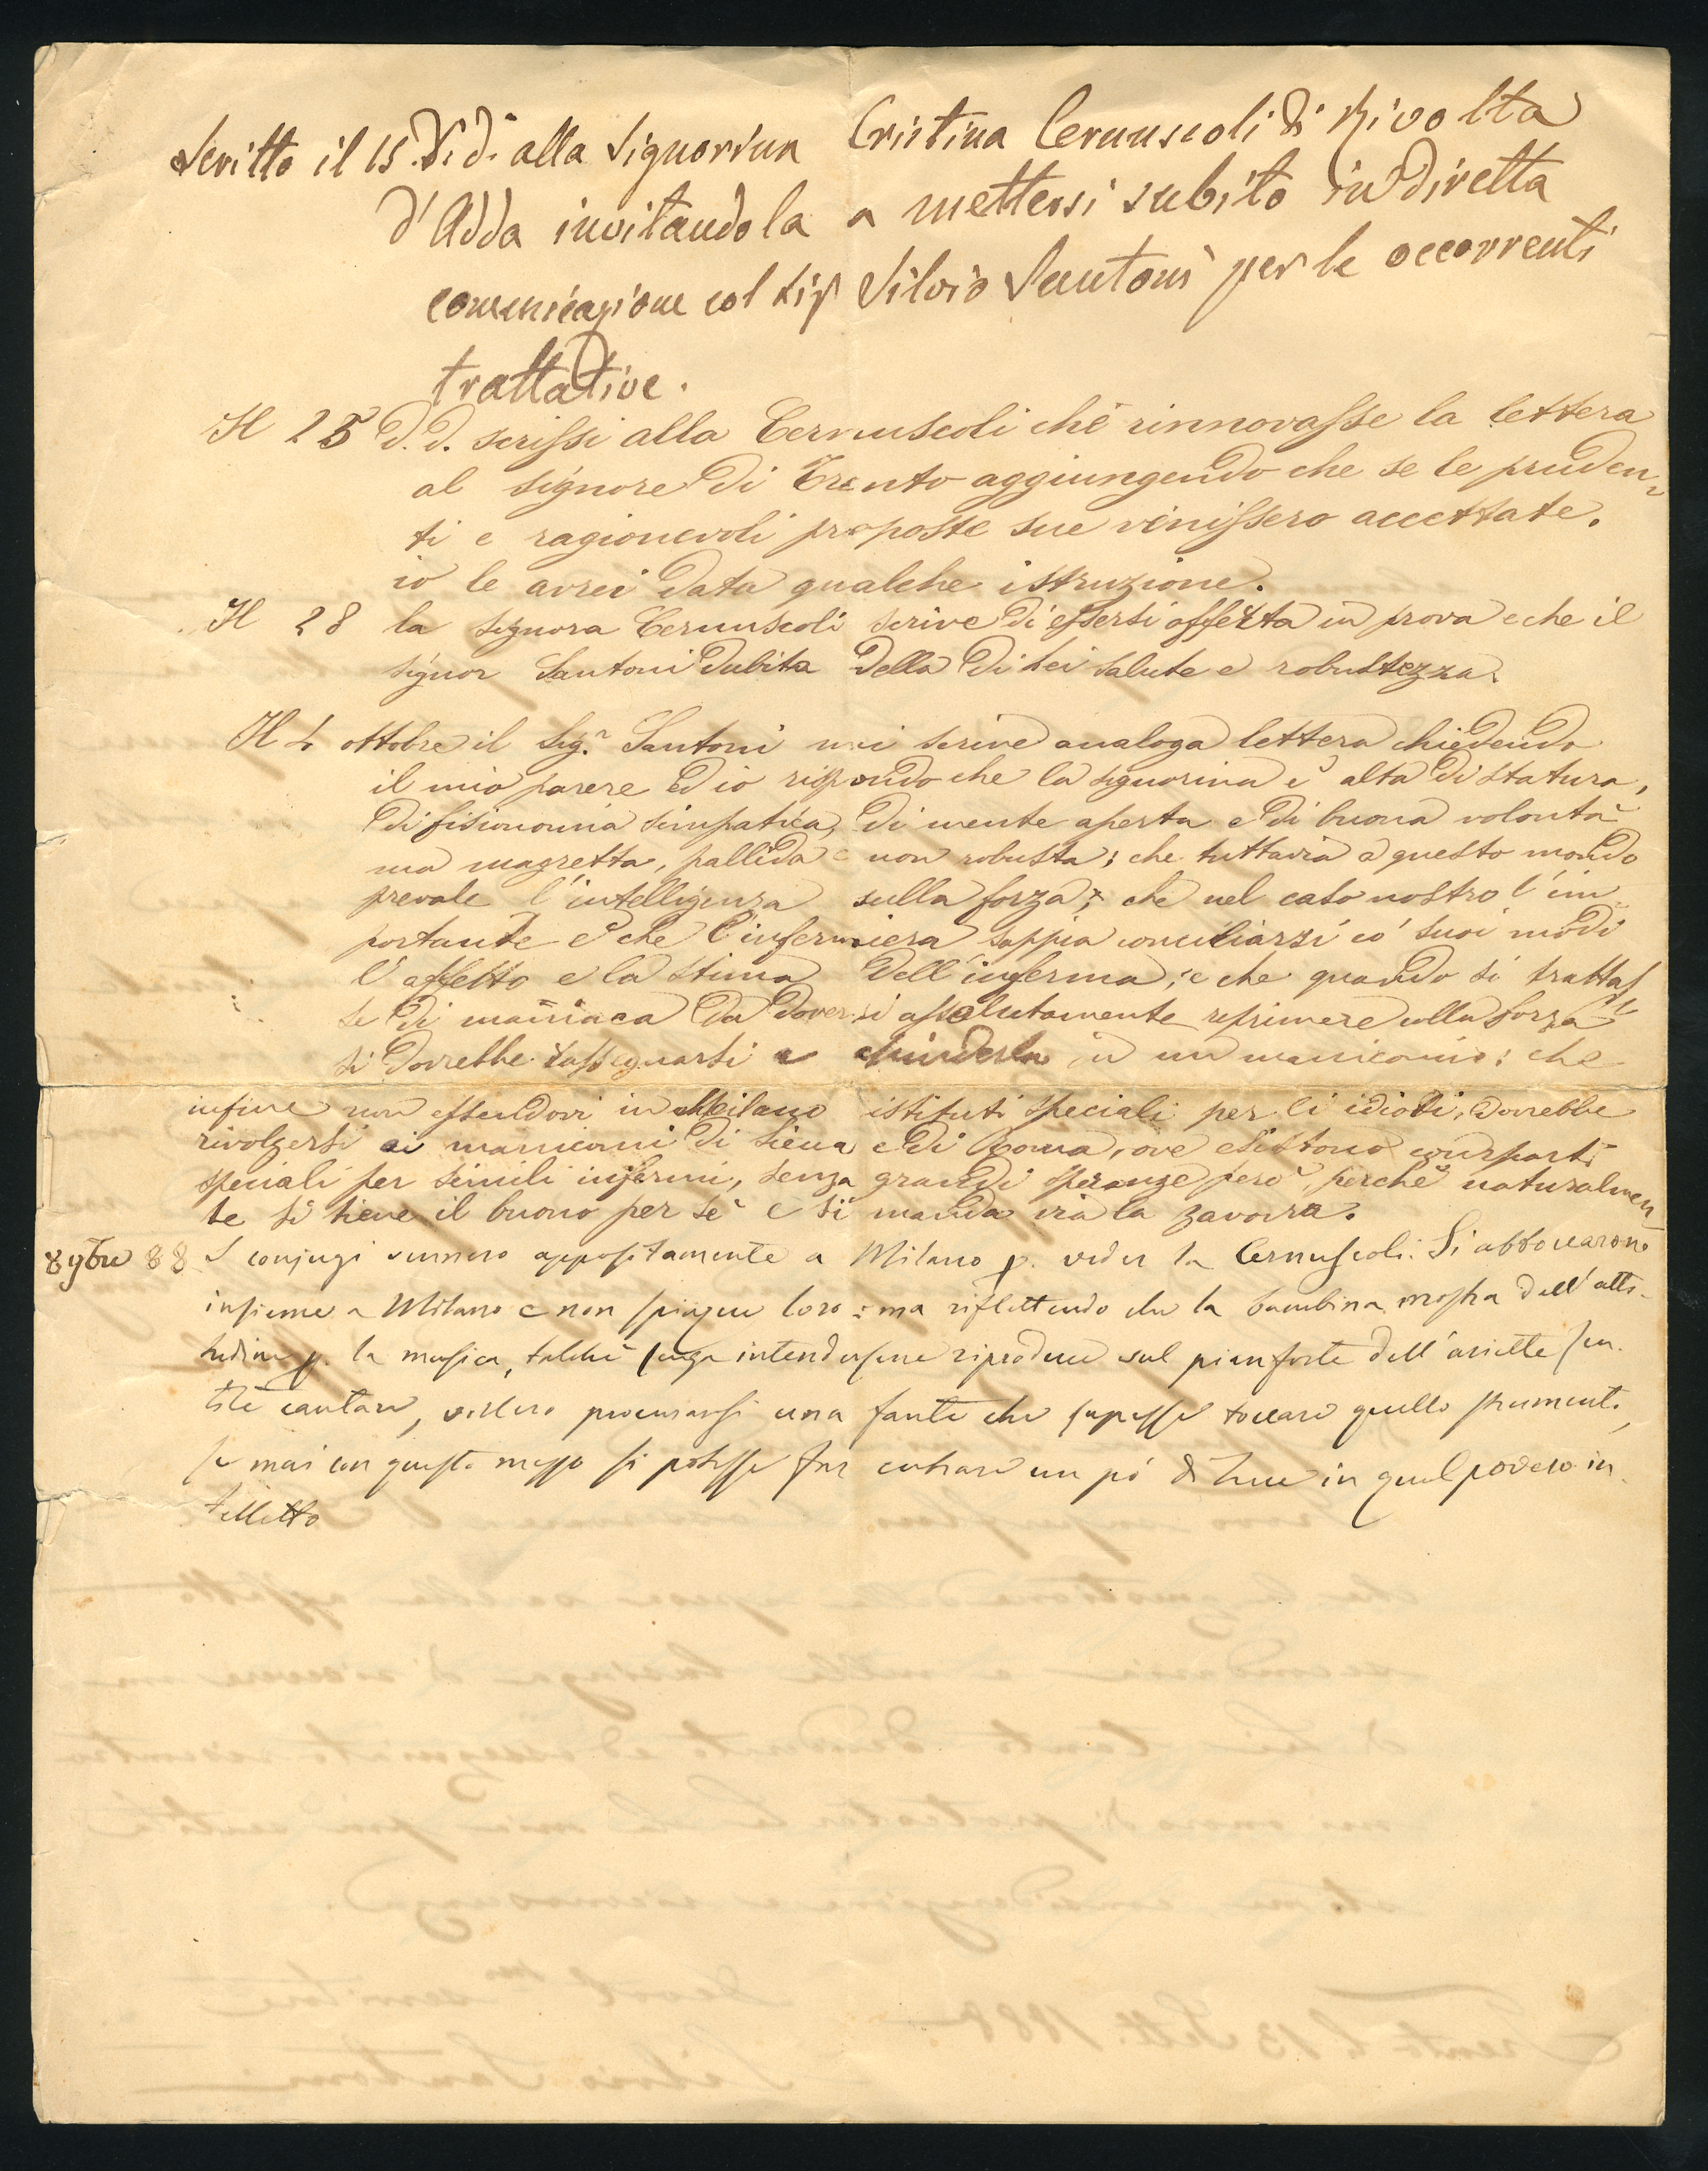 Scritto il 15 d.d. alla Signorina Cristina Cernuscoli di Rivolta
d'Adda invitandola a mettersi subito in diretta
comunicazione col Sig Silvio Santoni per le occorrenti
trattative.
Il 25 d.d. scrissi alla Cernuscoli che rinnovasse la lettera
al signore di Trento aggiungendo che se le pruden-
ti e ragionevoli proposte sue venissero accettate,
io le avrei data qualche istruzione.
Il 28 la signora Cernuscoli scrive di essersi offerta in prova e che il
signor Santoni dubita della di Lei salute e robustezza.
Il 4 ottobre il Sigr. Santoni mi scrive analoga lettera chiedendo
il mio parere ed io rispondo che la signorina è alta di statura,
di fisionomia simpatica, di mente aperta e di buona volontà
ma magretta, pallida e non robusta; che tuttavia a questo mondo
prevale l'intelligenza sulla forza; che nel caso nostro l'im
portante è che l'infermiera sappia conciliarsi co' suoi modi
l'affetto e la stima dell'inferma; e che quando si trattas
se di maniaca da doversi assolutamente reprimere colla forza
si dovrebbe rassegnarsi a chiuderla in un manicomio; che
infine non essendovi in Milano istituti speciali per li idioti, dovrebbe
rivolgersi ai manicomi di Siena e di Roma, ove esistono comparti
speciali per simili infermi, senza grandi speranze però, perchè naturalmen-
te si tiene il buono per sè e si manda via la zavorra.
8 9bre 88 I conjugi vennero appositamente a Milano p. veder la Cernuscoli. Si abboccarono
insieme a Milano e non spiacque loro: ma riflettendo che la bambina mostra dell'atti-
tudine p. la musica, talchè senza intendersene riproduce sul pianforte dell'ariette sen-
tite cantare, vollero procurarsi una fante che sapesse toccare quello strumento,
se mai con questo mezzo si potesse far entrare un pò di luce in quel povero in-
telletto